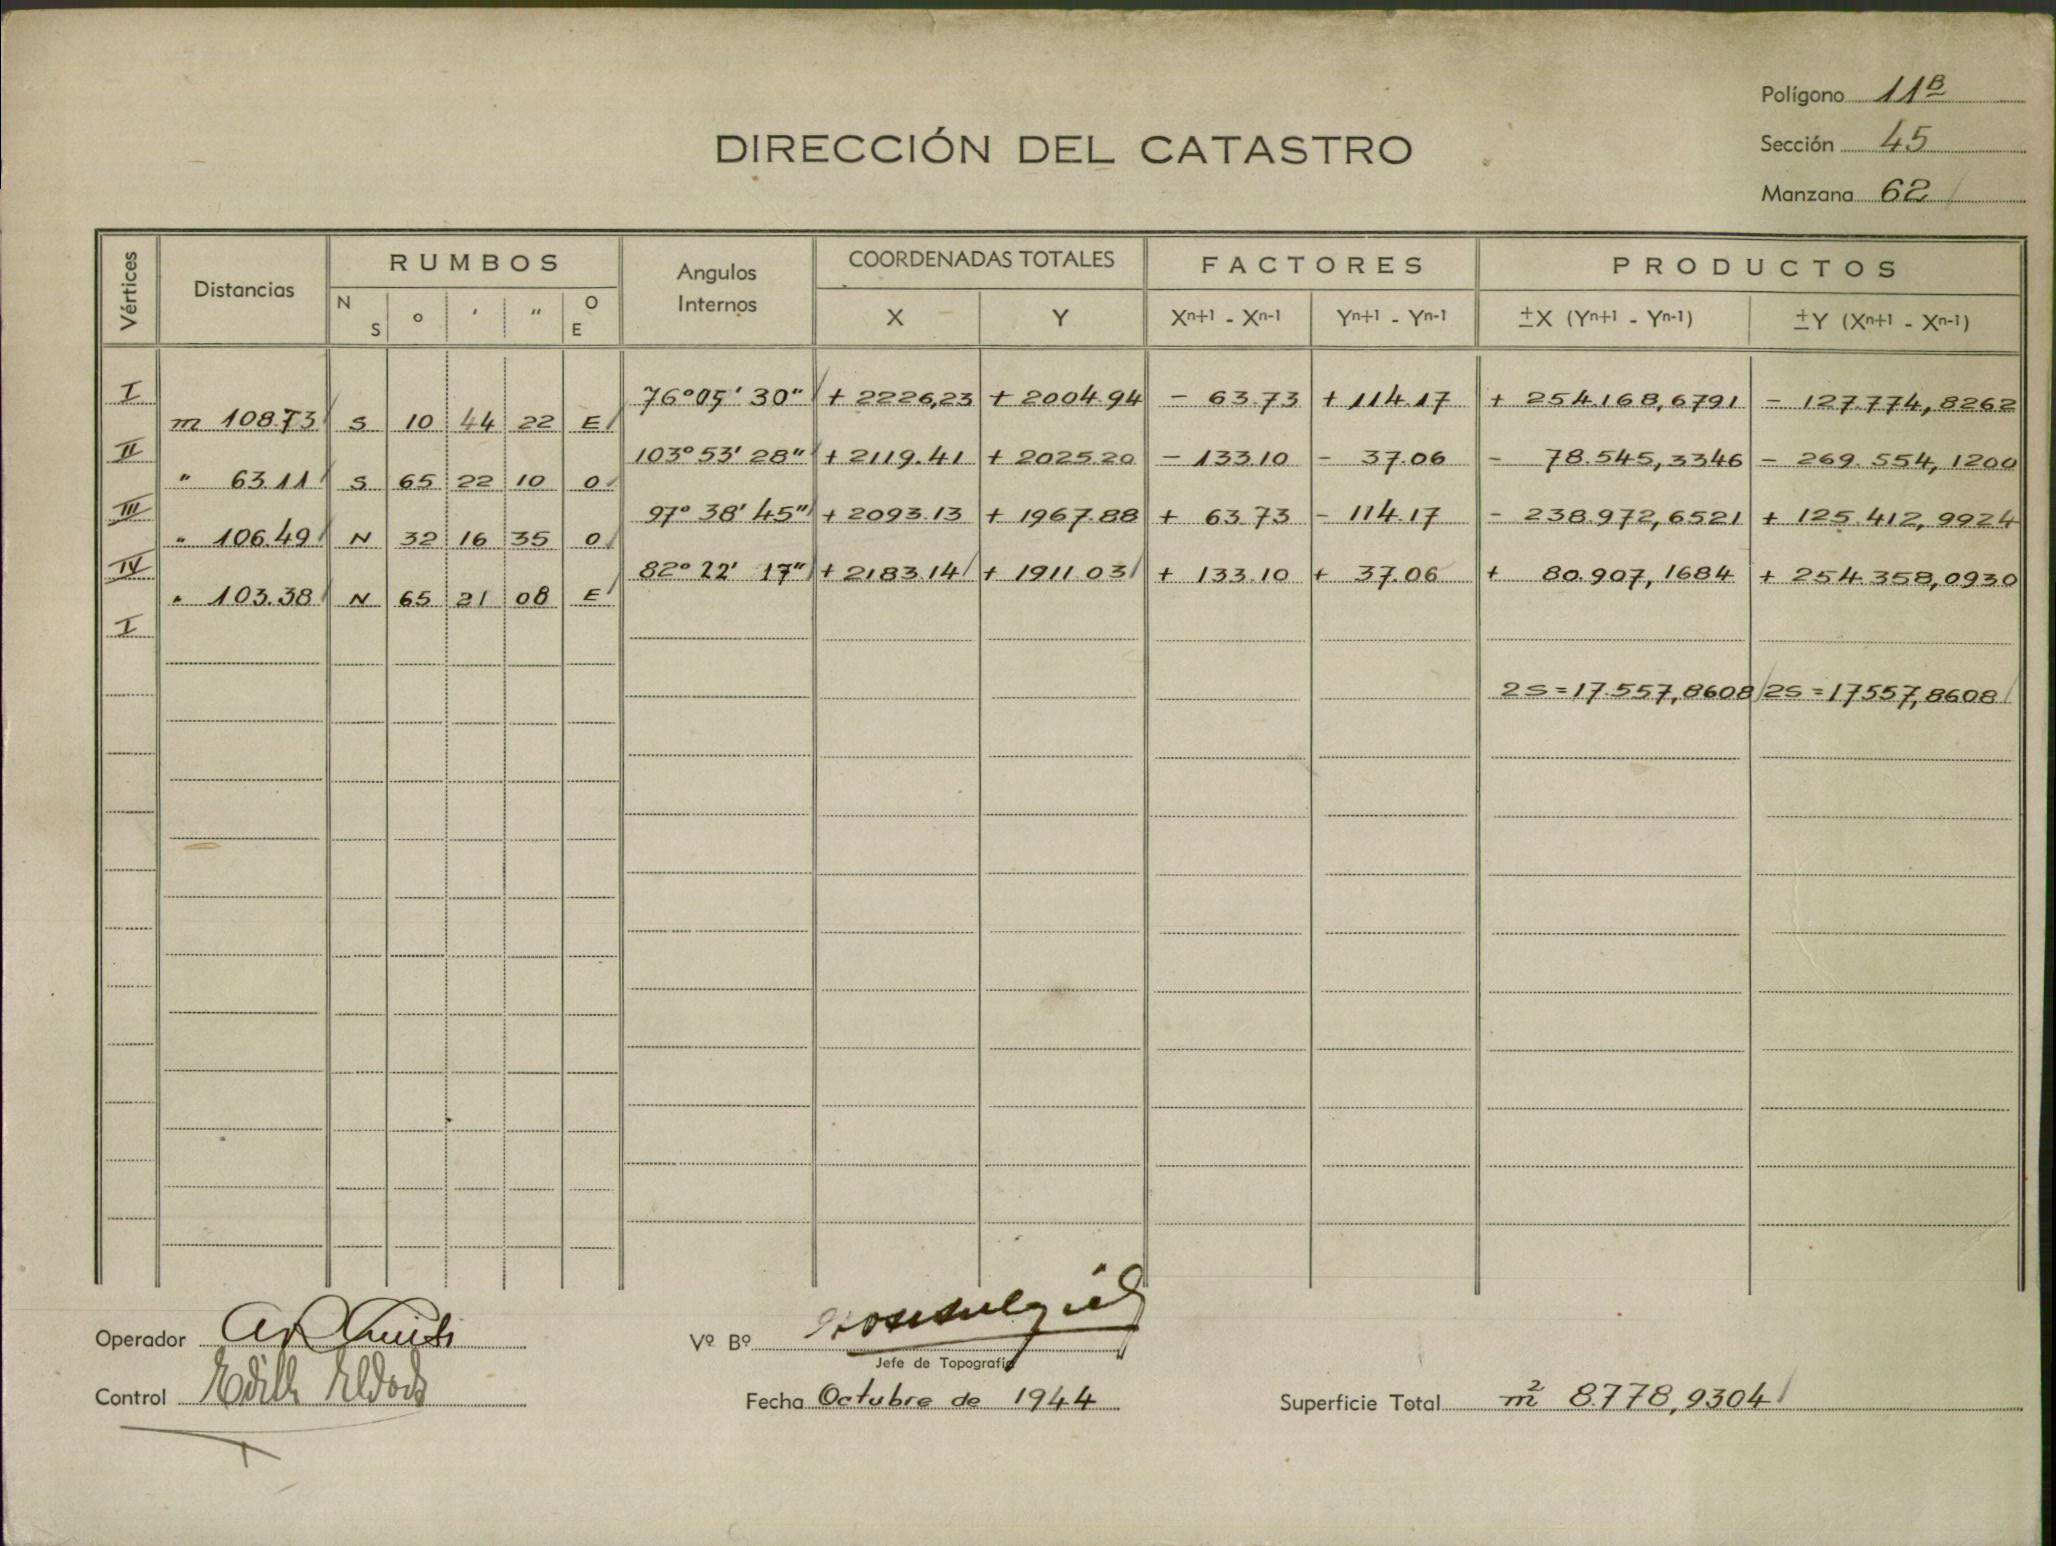 Polígono 11B
Sección 45
Manzana 62
DIRECCIÓN DEL CATASTRO
Vértices
Distancias
RUMBOS
N S ° ' " O E
Angulos Internos
COORDENADAS TOTALES
X Y
FACTORES
Xn+1 - Xn-1 Yn+1 - Yn-1
PRODUCTOS
±X (Yn+1 - Yn-1) ±Y (Xn+1 - Xn-1)
I 76° 05' 30" + 2226,23 + 2004.94 - 63.73 + 114.17 + 254.168,6791 - 127.774,8262
m 108.73 S 10 44 22 E
II 103° 53' 28" + 2119.41 + 2025.20 - 133.10 - 37.06 - 78.545,3346 - 269.554,1200
" 63.11 S 65 22 10 O
III 97° 38' 45" + 2093.13 + 1967.88 + 63.73 - 114.17 - 238.972,6521 + 125.412,9924
" 106.49 N 32 16 35 O
IV 82° 22' 17" + 2183.14 + 1911.03 + 133.10 + 37.06 + 80.907,1684 + 254.358,0930
" 103.38 N 65 21 08 E
I
2S = 17.557,8608 2S = 17557,8608
Operador
Vº Bº
Jefe de Topografía
Control
Fecha Octubre de 1944
Superficie Total m² 8.778,9304